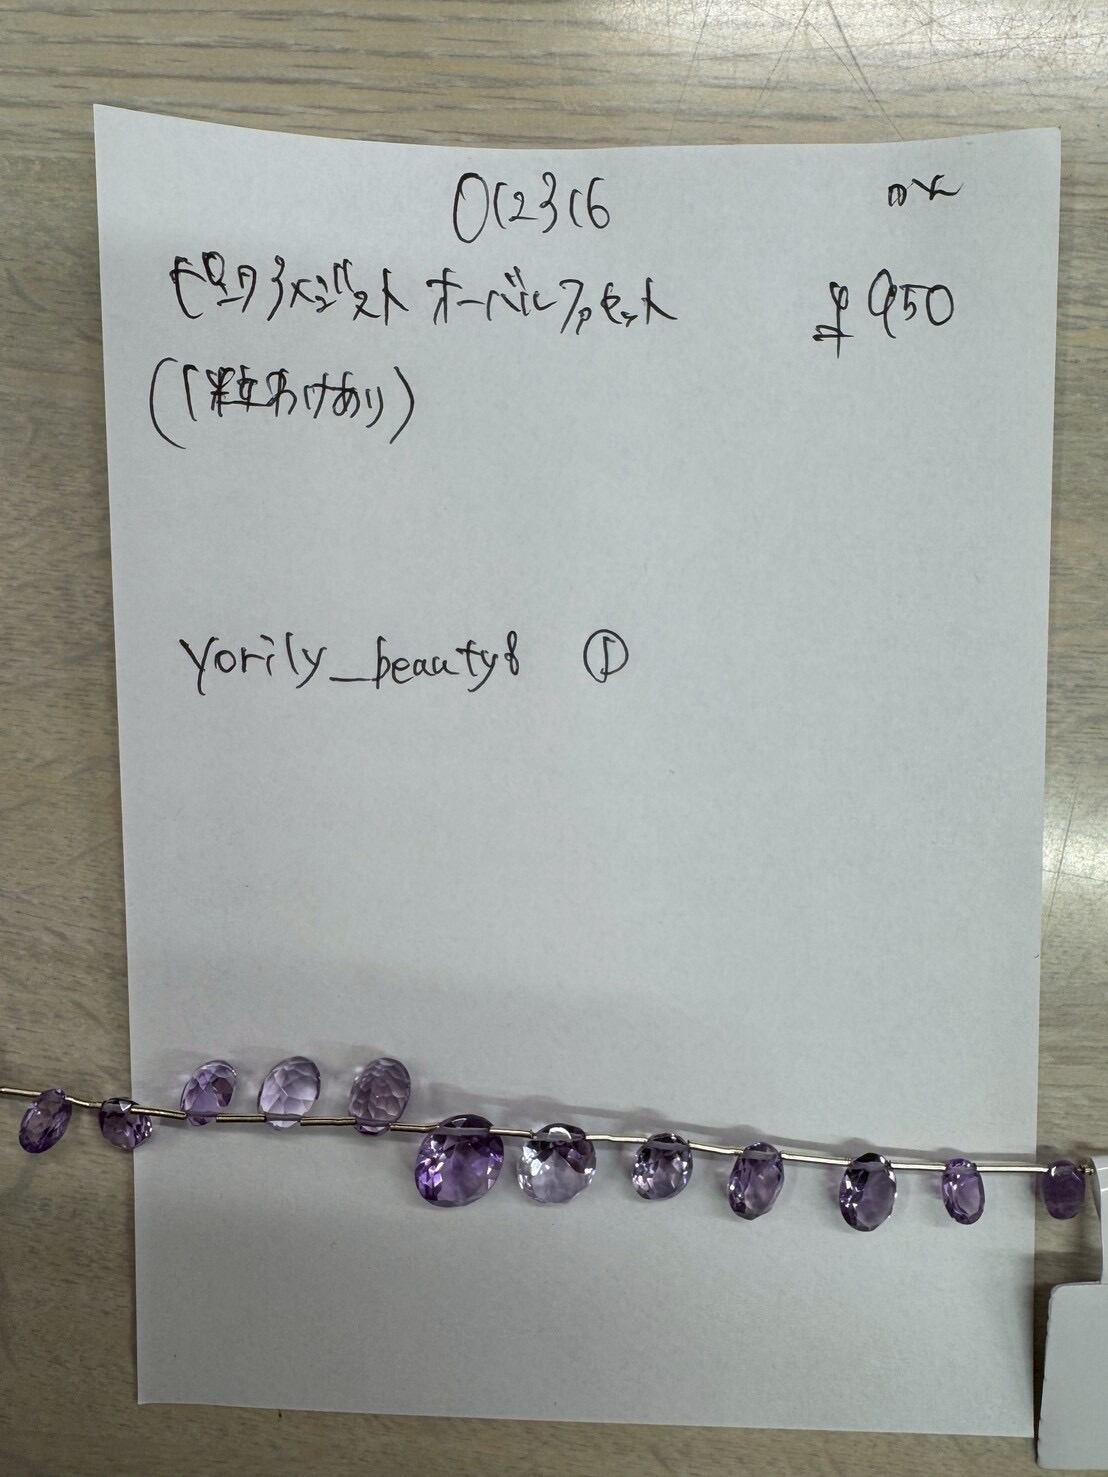 012316
ピンクアメジスト オーバルファセット ¥950
(1粒わけあり)
yorily_beauty8 ①